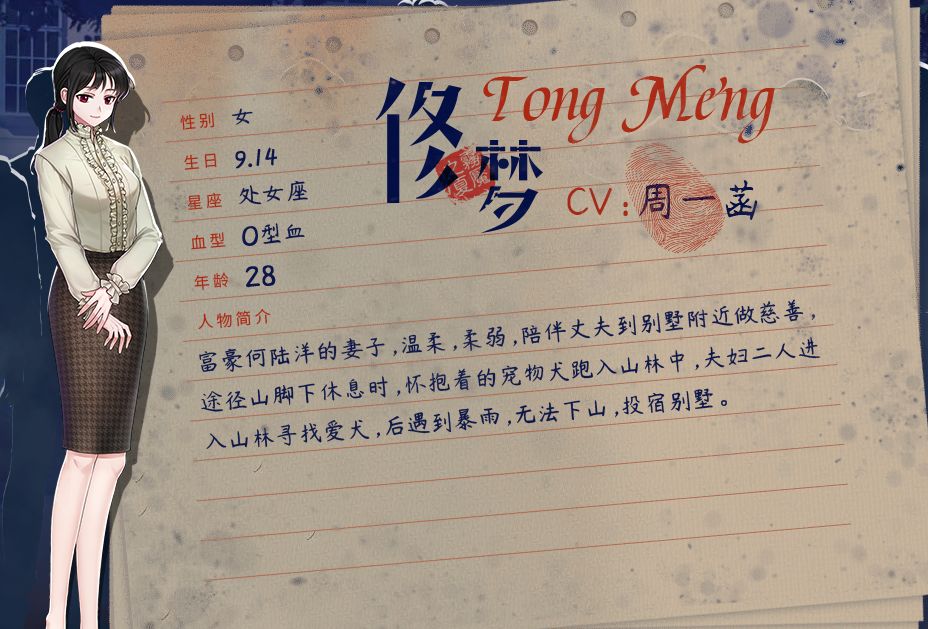 佟梦
Tong Me'ng
CV：周一菡
性别 女
生日 9.14
星座 处女座
血型 O型血
年龄 28
人物简介
富豪何陆洋的妻子，温柔，柔弱，陪伴丈夫到别墅附近做慈善，
途径山脚下休息时，怀抱着的宠物犬跑入山林中，夫妇二人进
入山林寻找爱犬，后遇到暴雨，无法下山，投宿别墅。